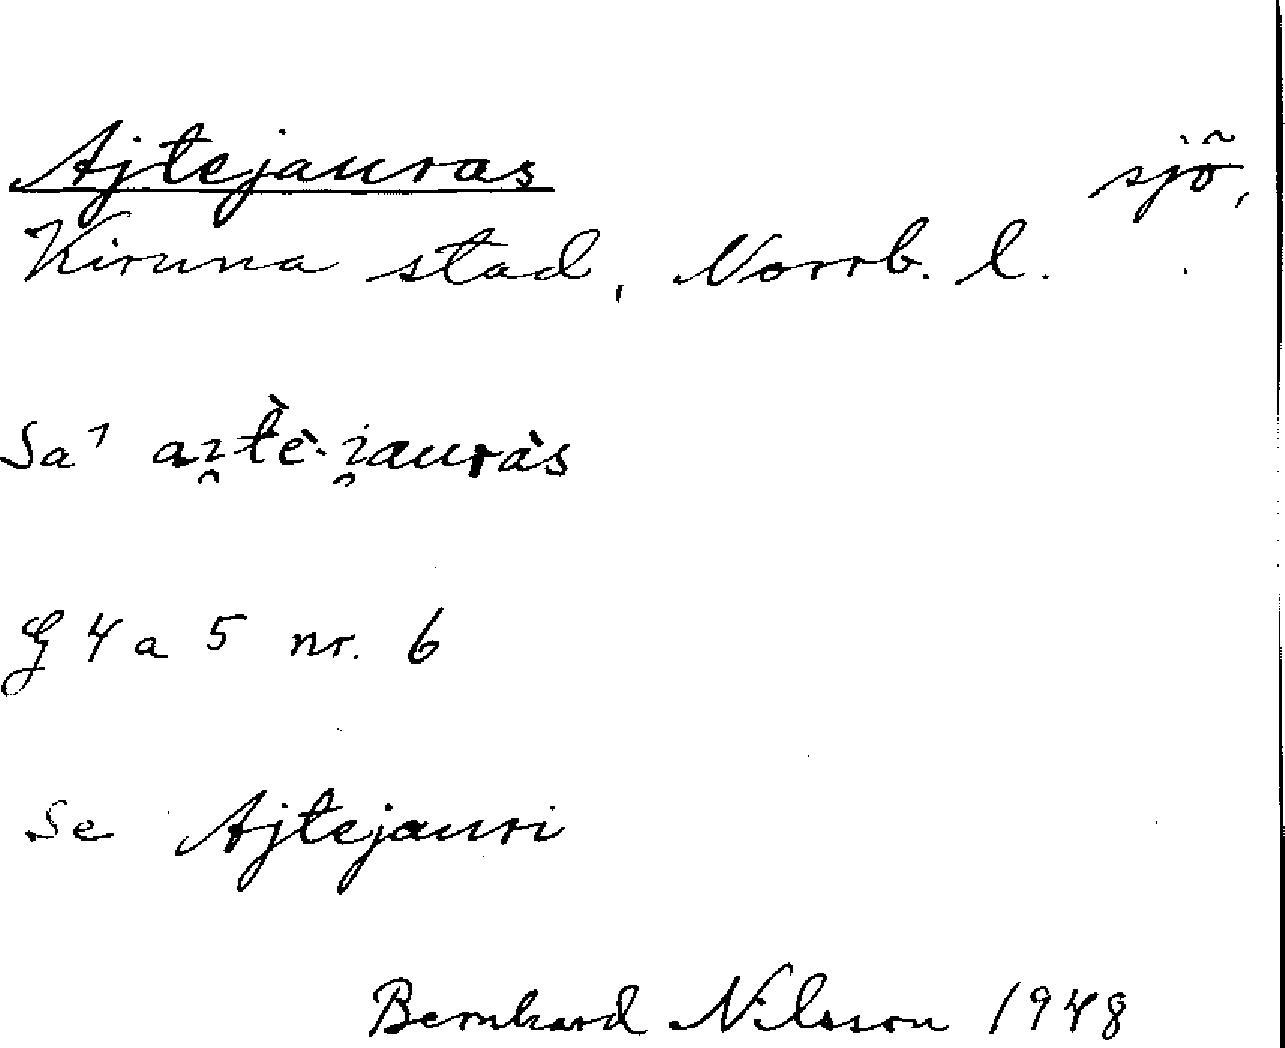 Ajtejauras sjö,
Kiruna stad, Norrb. l.
Sa¹ ai̯tè-i̯auràs
G 4 a 5 nr. 6
Se Ajtejauri
Bernhard Nilsson 1948